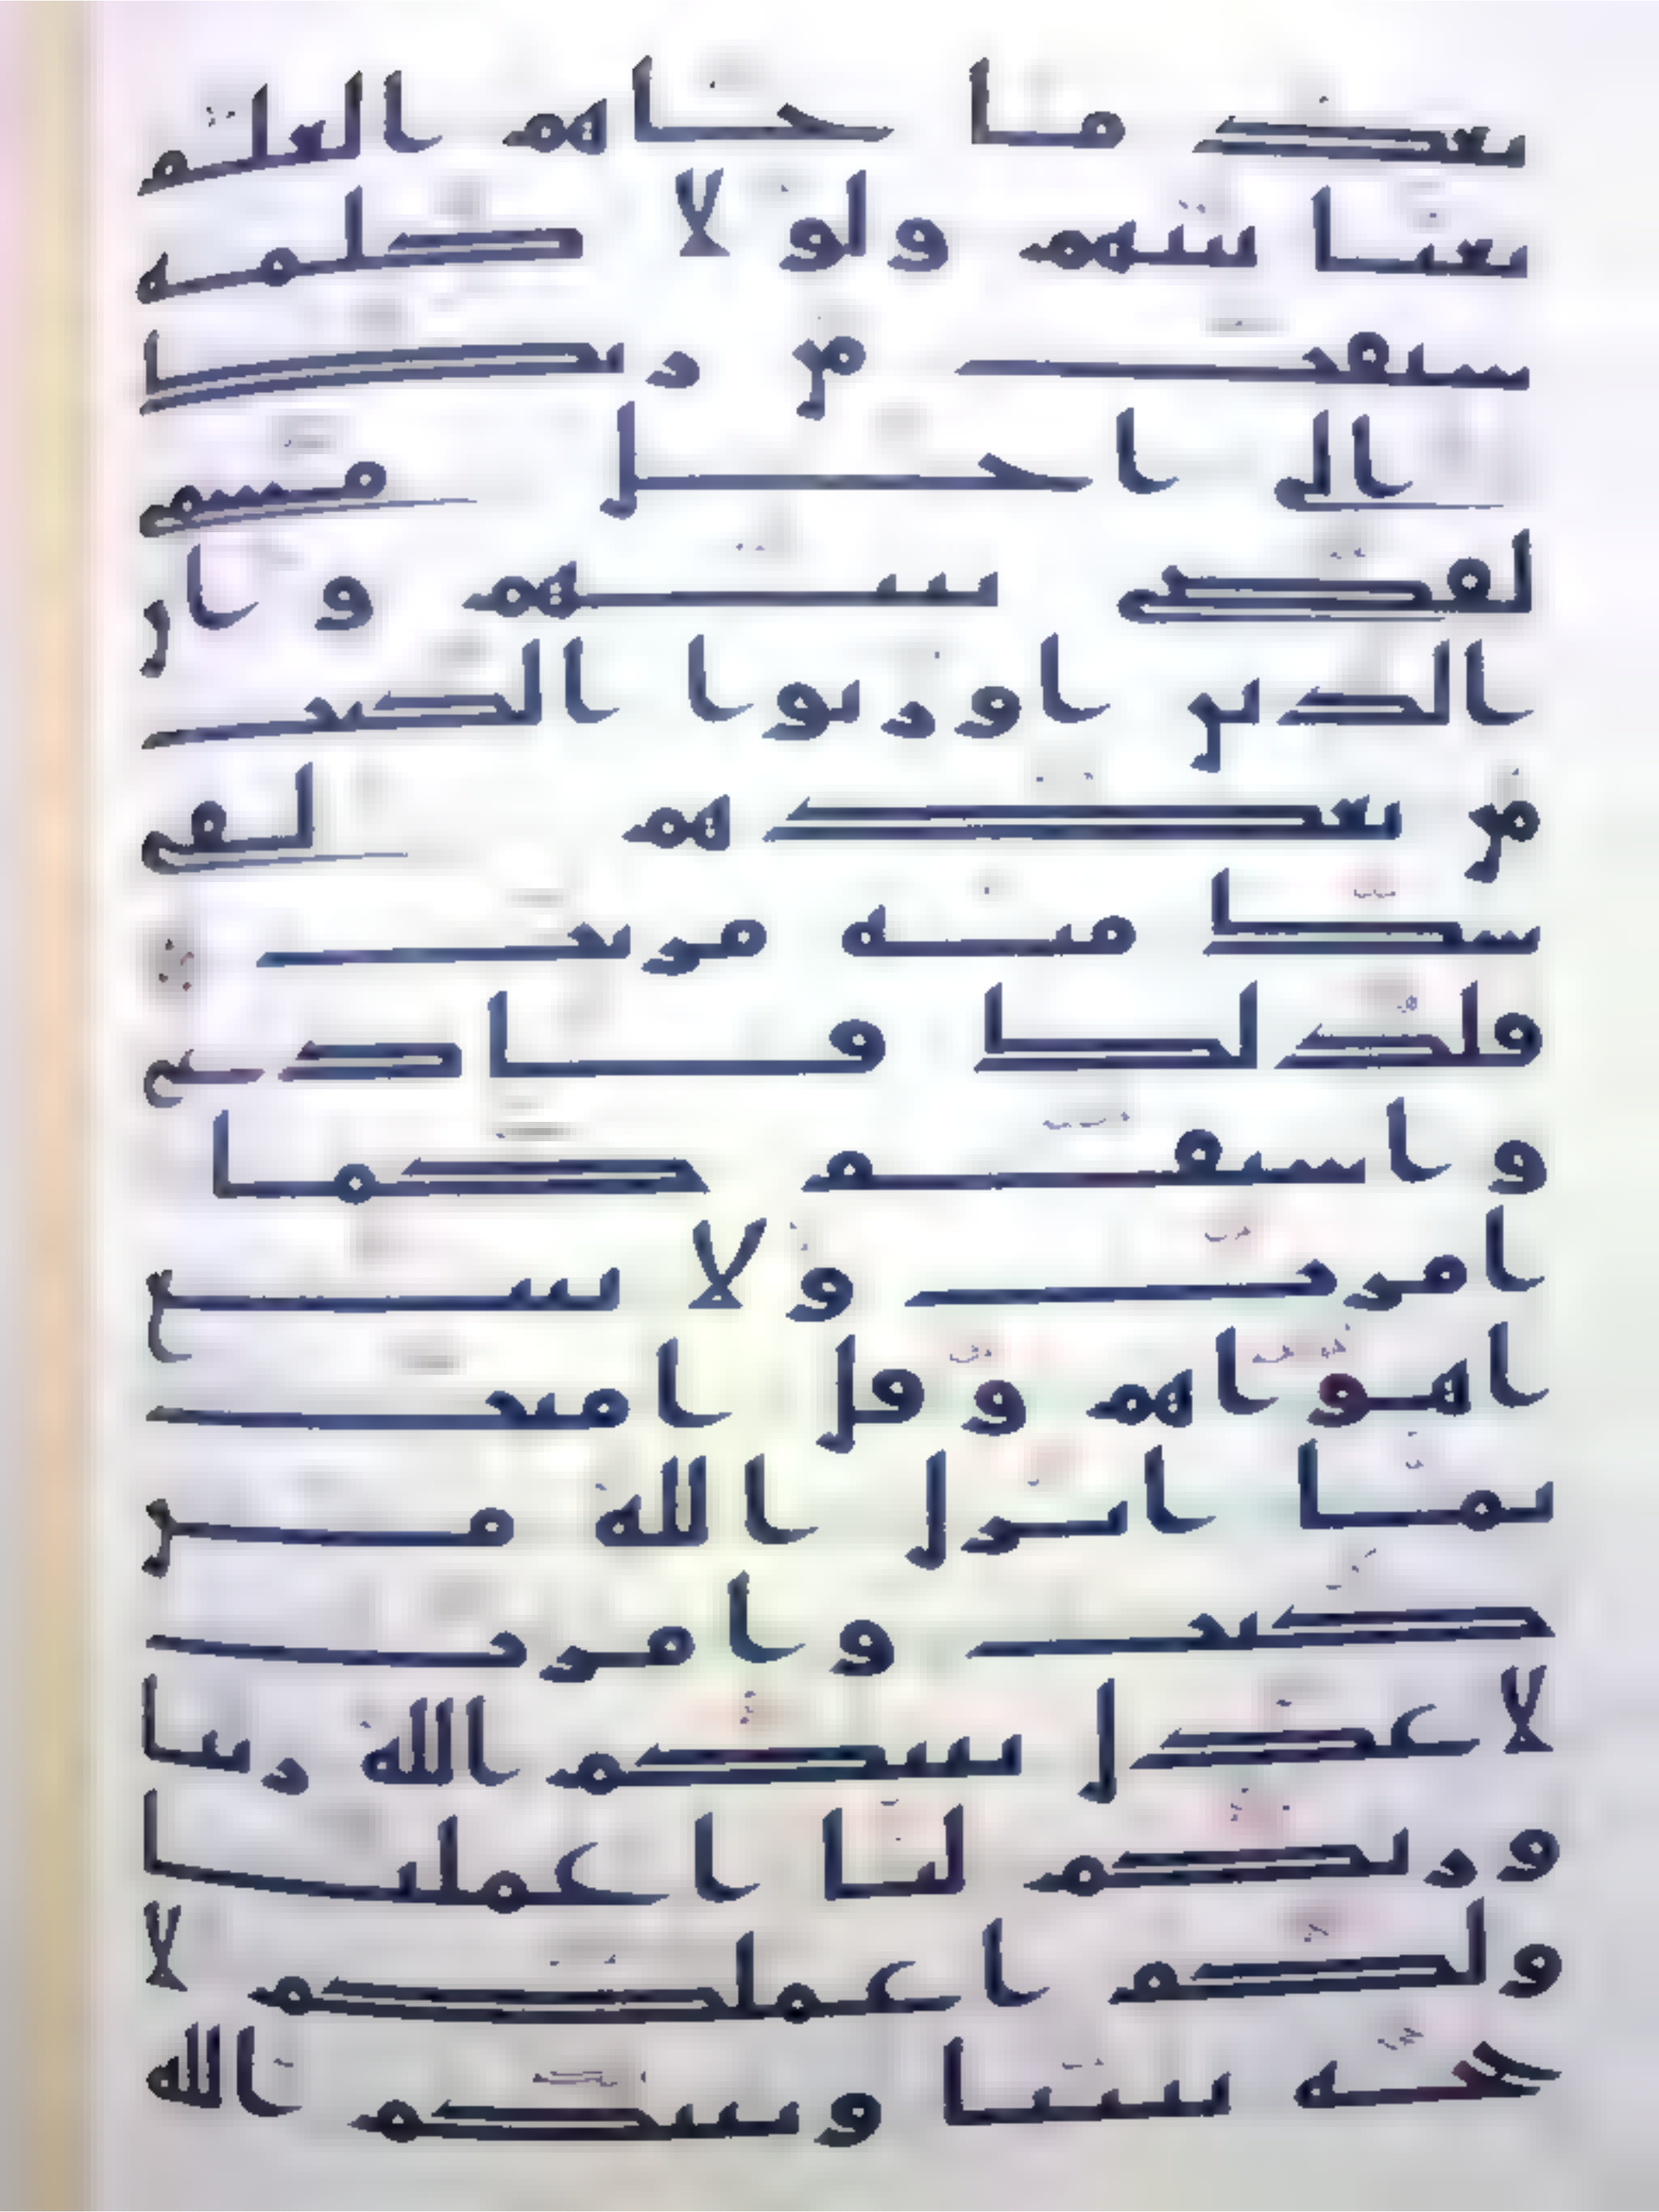 بعد ما جاهم العلم
بغيا بينهم ولولا كلمه
سبقت من ربك
الى اجل مسمى
لقضى بينهم وان
الذين اورثوا الكتب
من بعدهم لفى
شك منه مريب
فلذلك فادع
واستقم كما
امرت ولا تتبع
اهواهم وقل امنت
بما انزل الله من
كتب وامرت
لاعدل بينكم الله ربنا
وربكم لنا اعملنا
ولكم اعملكم لا
حجه بيننا وبينكم الله